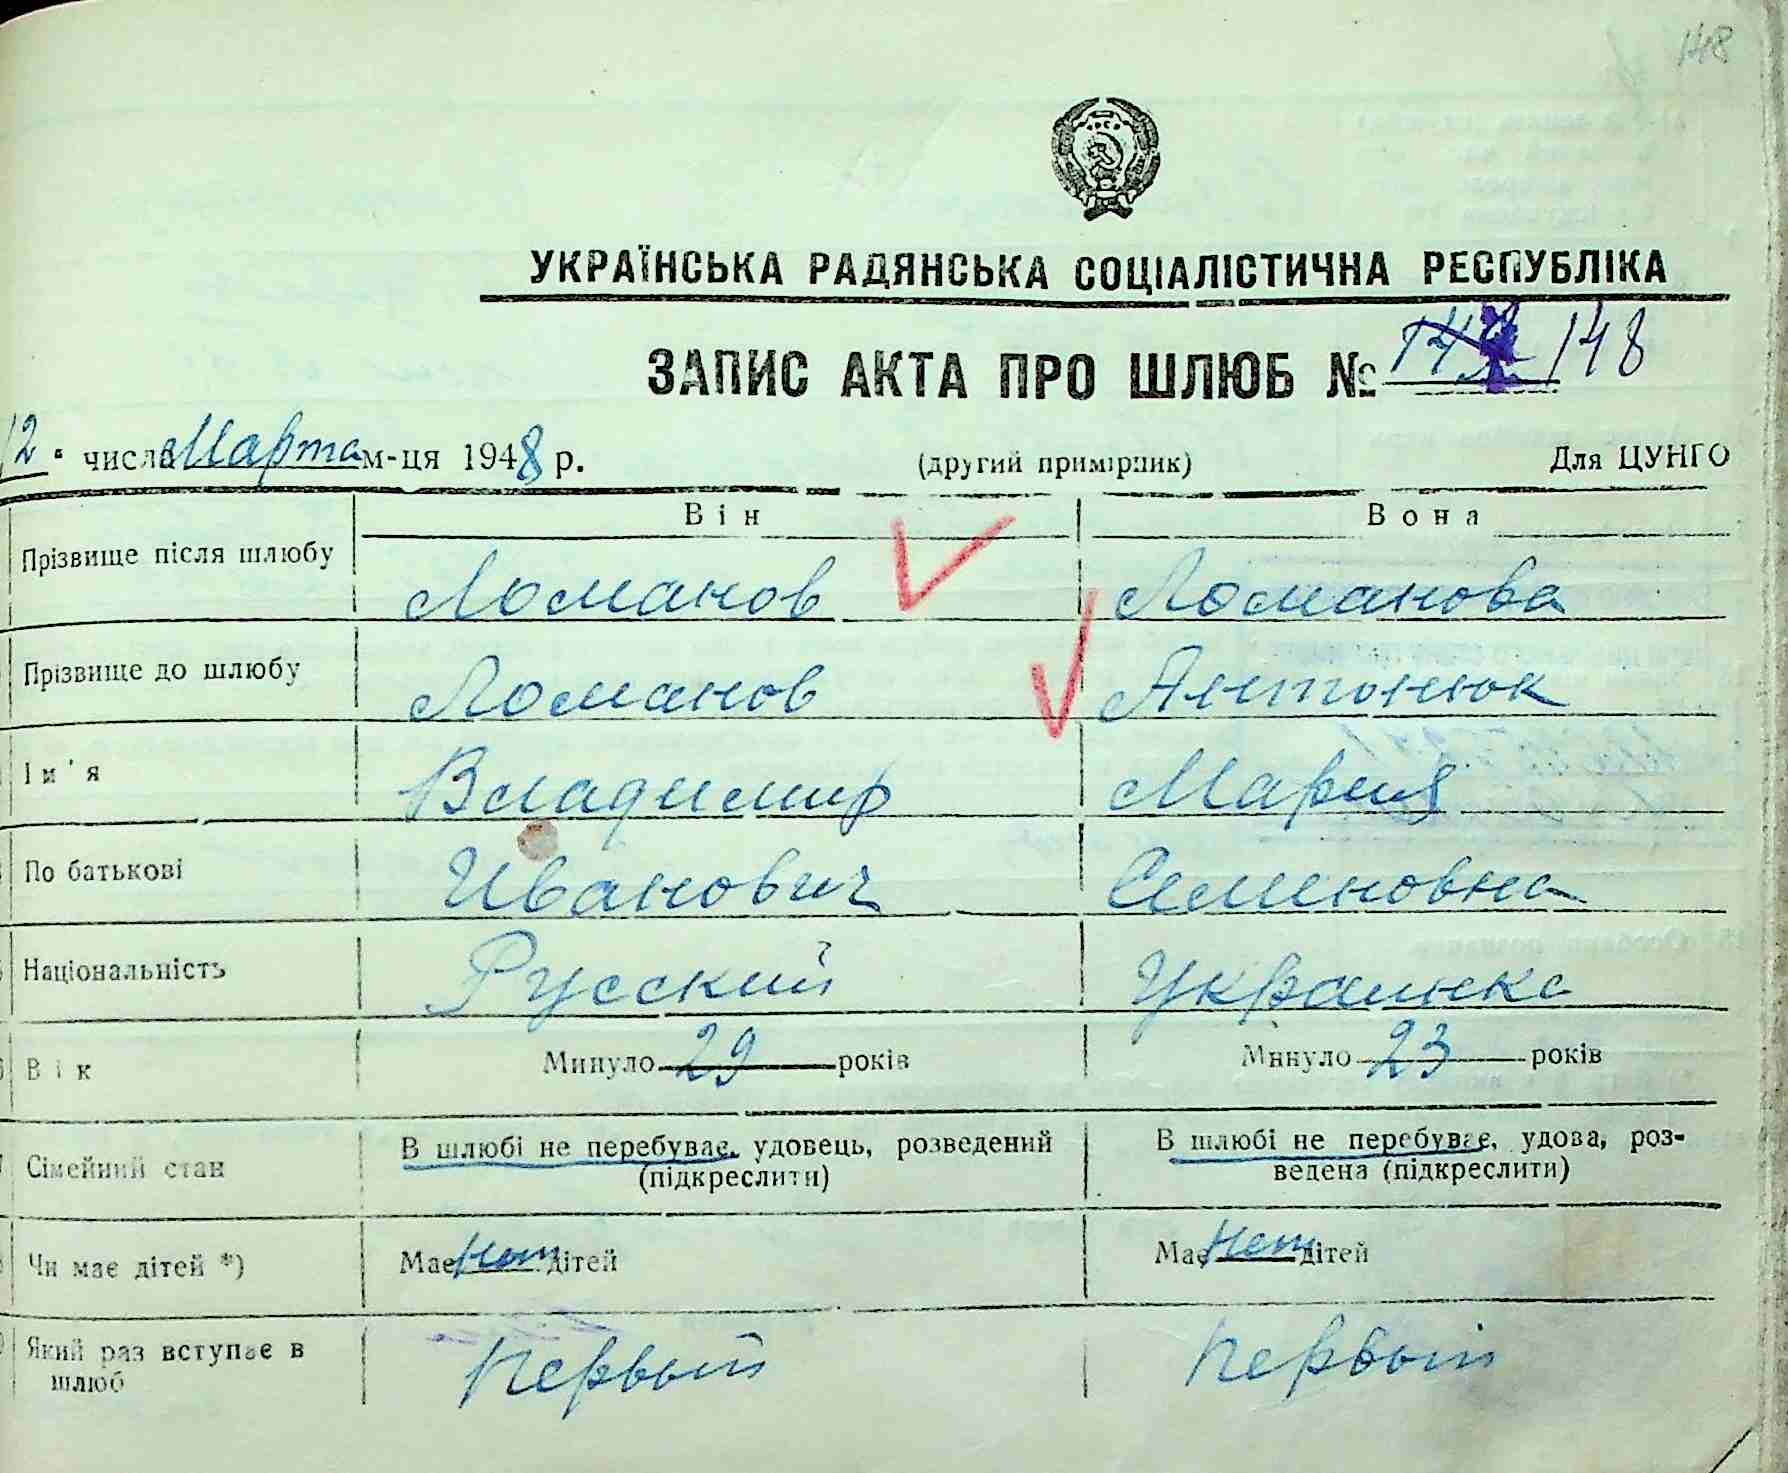 148
УКРАЇНСЬКА РАДЯНСЬКА СОЦІАЛІСТИЧНА РЕСПУБЛІКА
ЗАПИС АКТА ПРО ШЛЮБ № 148
12 числа Марта м-ця 1948 р. (другий примірник) Для ЦУНГО
Він Вона
Прізвище після шлюбу Ломанов Ломанова
Прізвище до шлюбу Ломанов Антонюк
Ім'я Владимир Мария
По батькові Иванович Семеновна
Національність Русский Украинка
Вік Минуло 29 років Минуло 23 років
Сімейний стан В шлюбі не перебуває, удовець, розведений (підкреслити) В шлюбі не перебуває, удова, роз-
ведена (підкреслити)
Чи має дітей *) Має Нет дітей Має Нет дітей
Який раз вступає в шлюб Первый Первый